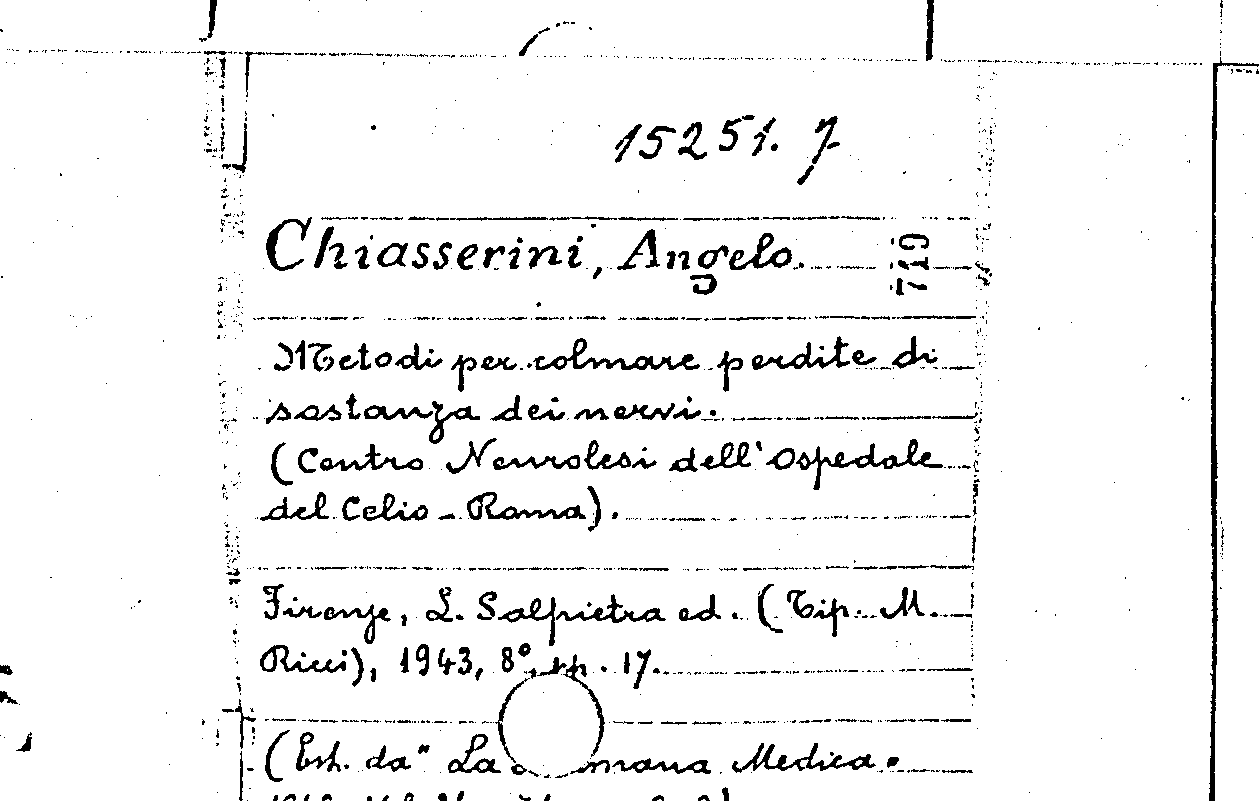 15251. 7
Chiasserini, Angelo.
719
Metodi per colmare perdite di
sostanza dei nervi.
(Centro Neurolesi dell'Ospedale
del Celio - Roma).
Firenze, L. Salpietra ed. (Tip. M.
Ricci), 1943, 8°, pp. 17.
(Estr. da "La Medica